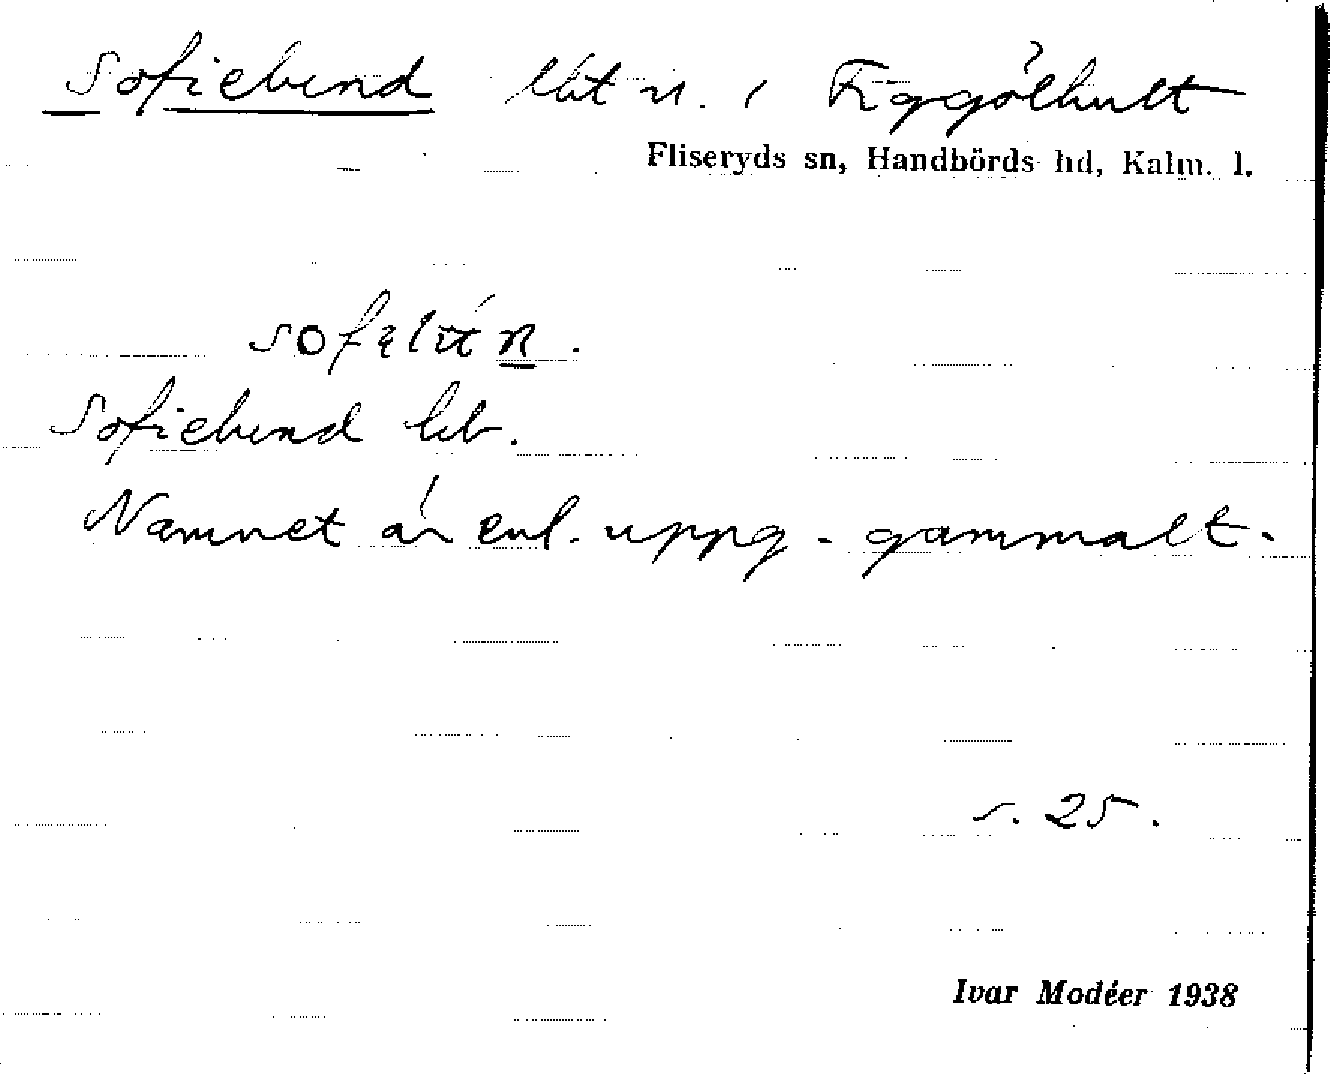 Sofielund lht n. i Figgölhult
Fliseryds sn, Handbörds hd, Kalm. l.
Sofielund
Namnet är enl. uppg. gammalt.
s. 25.
Ivar Modéer 1938